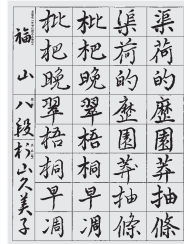 渠荷的歷園莽抽條
渠荷的歷園莽抽條
枇杷晚翠梧桐早凋
枇杷晚翠梧桐早凋
福山 八段 杉山久美子